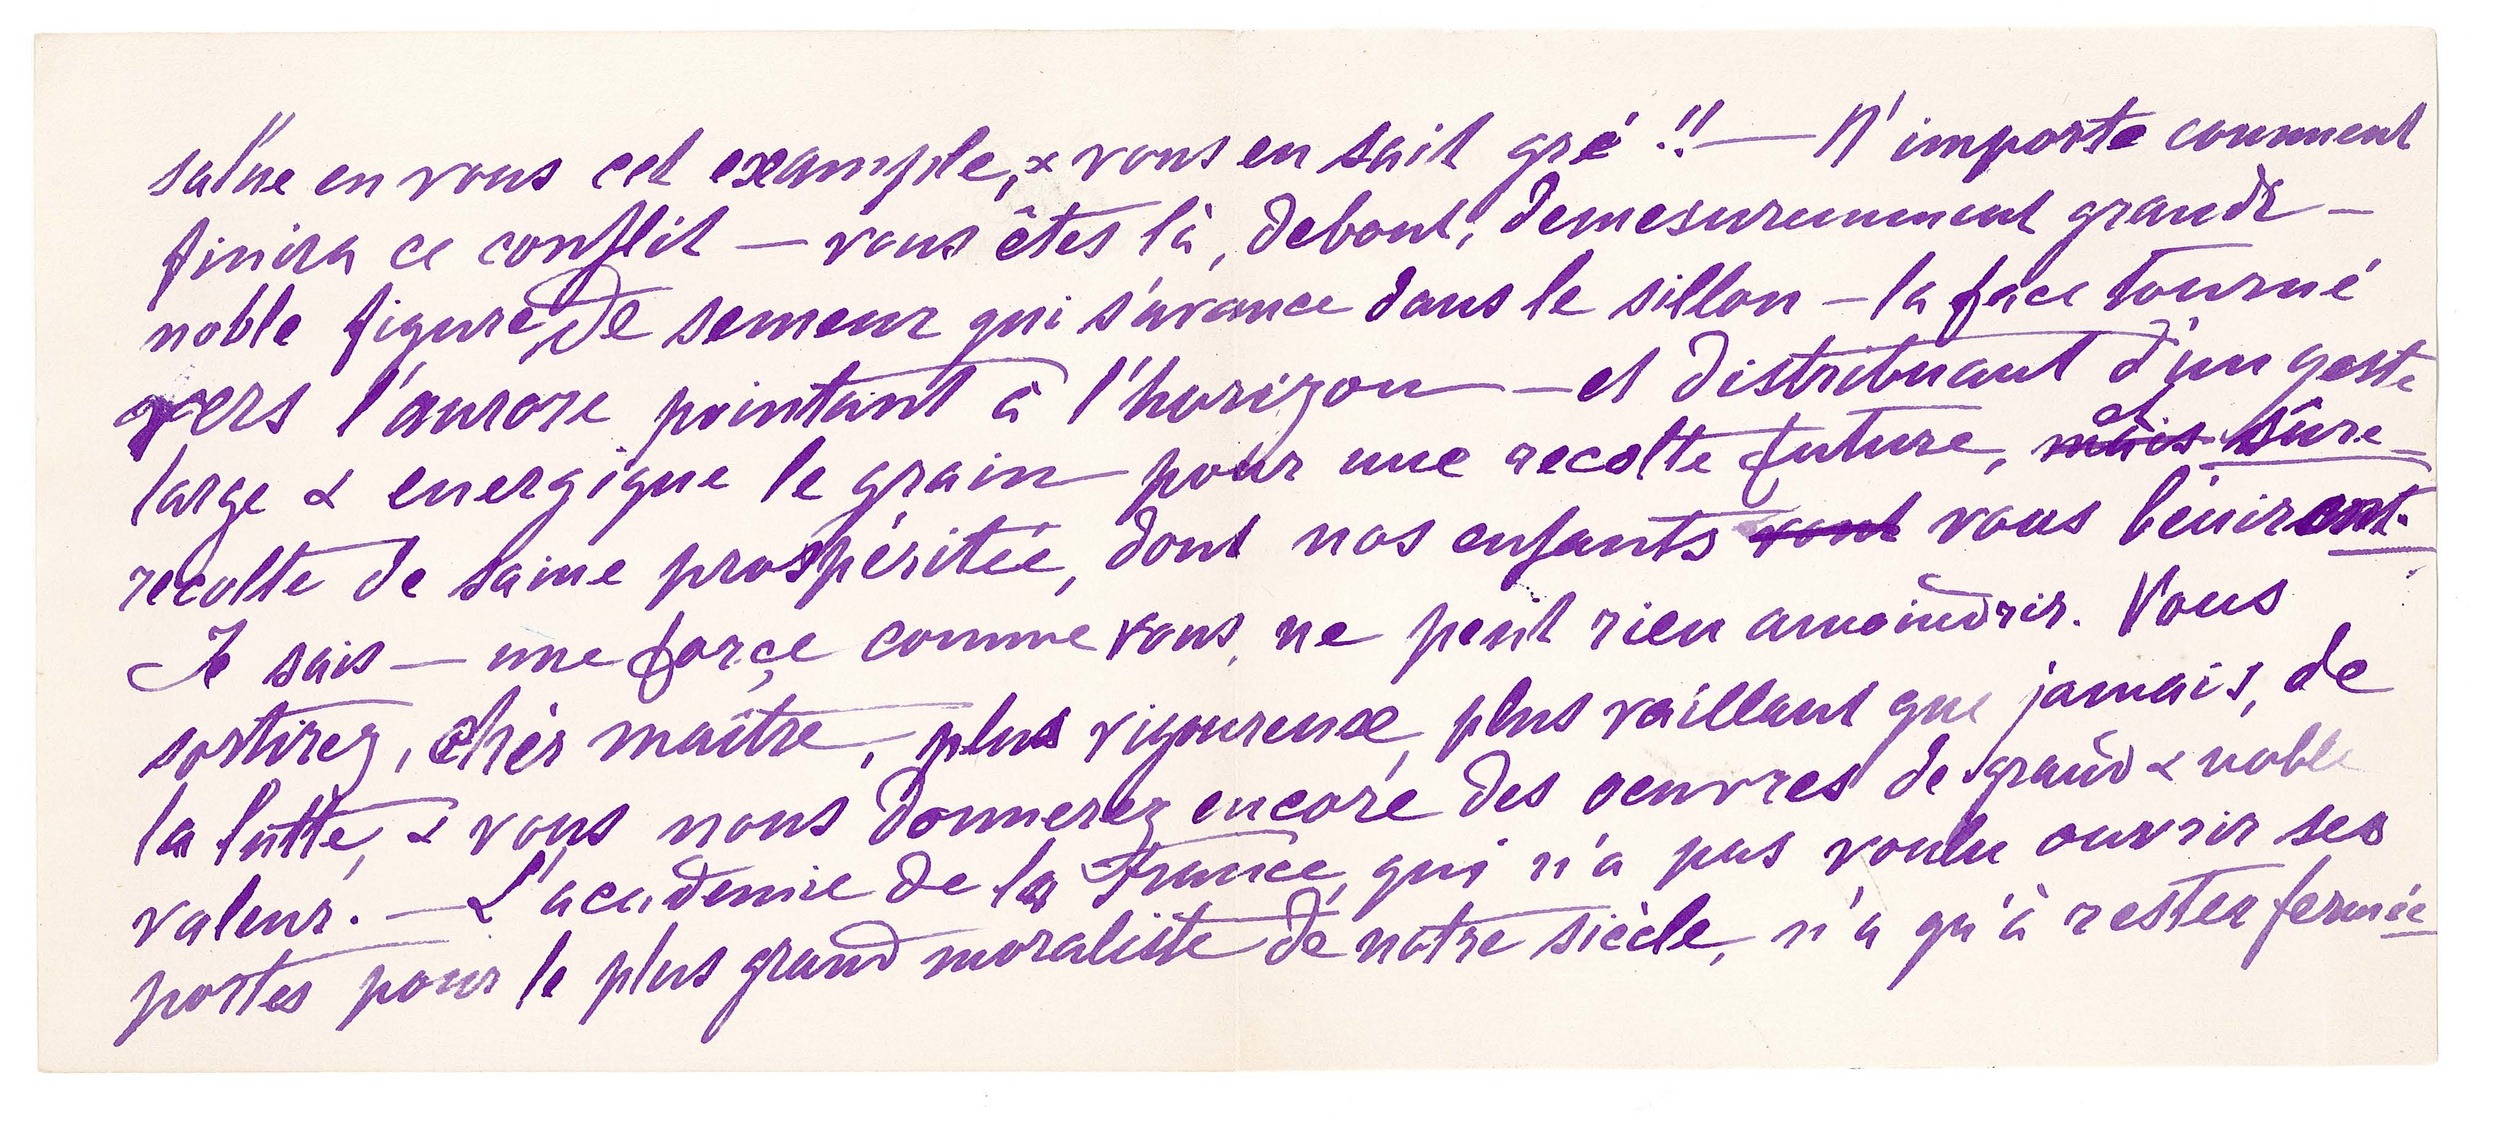 salue en vous cet example, & vous en sait gré !! — N'importe comment
finira ce conflit — vous êtes là, debout, demesurement grande —
noble figure de semeur qui s'avance dans le sillon — la face tourné
vers l'aurore pointant à l'horizon — et distribuant d'un geste
large & energique le grain pour une recolte future, mais et sûre —
recolte de saine prospéritée, dont nos enfants vont vous béniront.
Je sais — une forçe comme vous, ne peut rien amoindrir. Vous
sortirez, chèr maître, plus vigoureuse, plus vaillant que jamais, de
la lutte, & vous nous donnerez encore des oeuvres de grand & noble
valeur. — L'academie de la France, qui n'a pas voulu ouvrir ses
portes pour le plus grand moraliste de notre siècle, n'a qu'à rester fermée